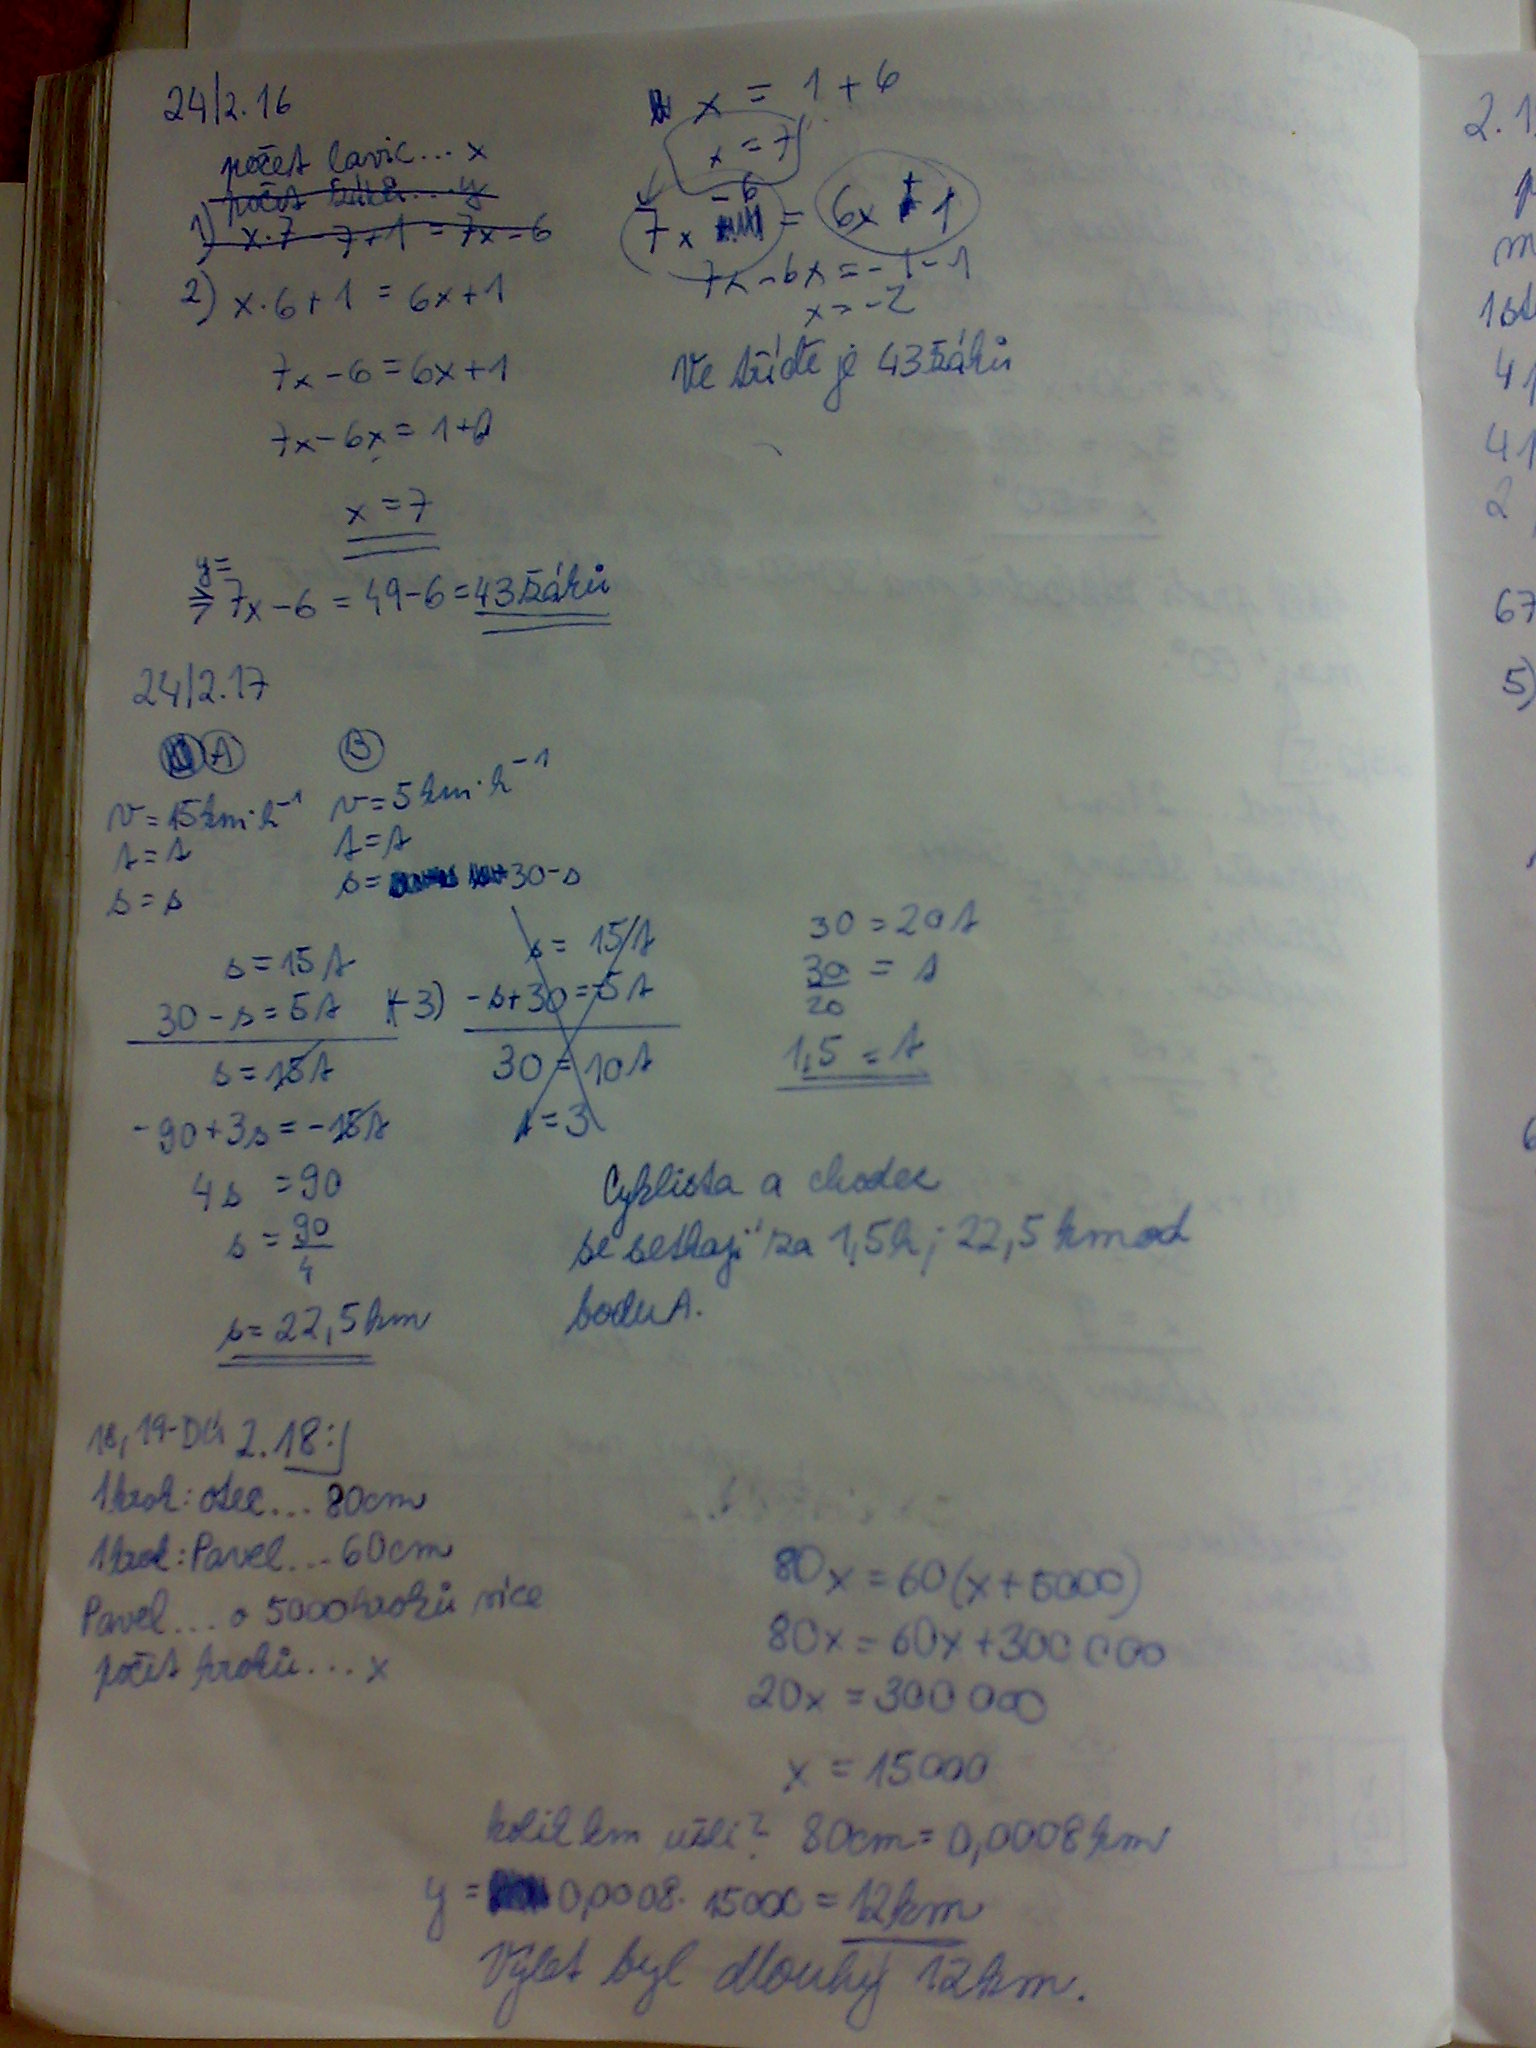 24/2.16
počet lavic... x
počet žáků....y
1) x·7-7+1=7x-6
2) x·6+1=6x+1
7x-6=6x+1
7x-6x=1+6
x=7
y=
7x-6=49-6=43 žáků
x=1+6
x=7
7x -6 = 6x+1
7x-6x=-1-1
x=-2
Ve třídě je 43 žáků
24/2.17
A B
v=15km·h⁻¹ v=5km·h⁻¹
t=t t=t
s=s s= 30-s
s=15t
30-s=5t /·(-3)
s=15t
-90+3s=-15t
4s=90
s=90/4
s=22,5km
s=15t
-s+30=-5t
30=10t
t=3
30=20t
30/20=t
1,5=t
Cyklista a chodec
se setkají za 1,5h; 22,5km od
bodu A.
18,19-DÚ 2.18:
1krok: otec... 80cm
1krok: Pavel... 60cm
Pavel.... o 5000kroků více
počet kroků... x
80x=60(x+5000)
80x=60x+300 000
20x=300 000
x=15000
kolik km ušli? 80cm=0,0008km
y= 0,0008·15000=12km
Výlet byl dlouhý 12km.
2.1
1st
41
41
2
67
5)
6